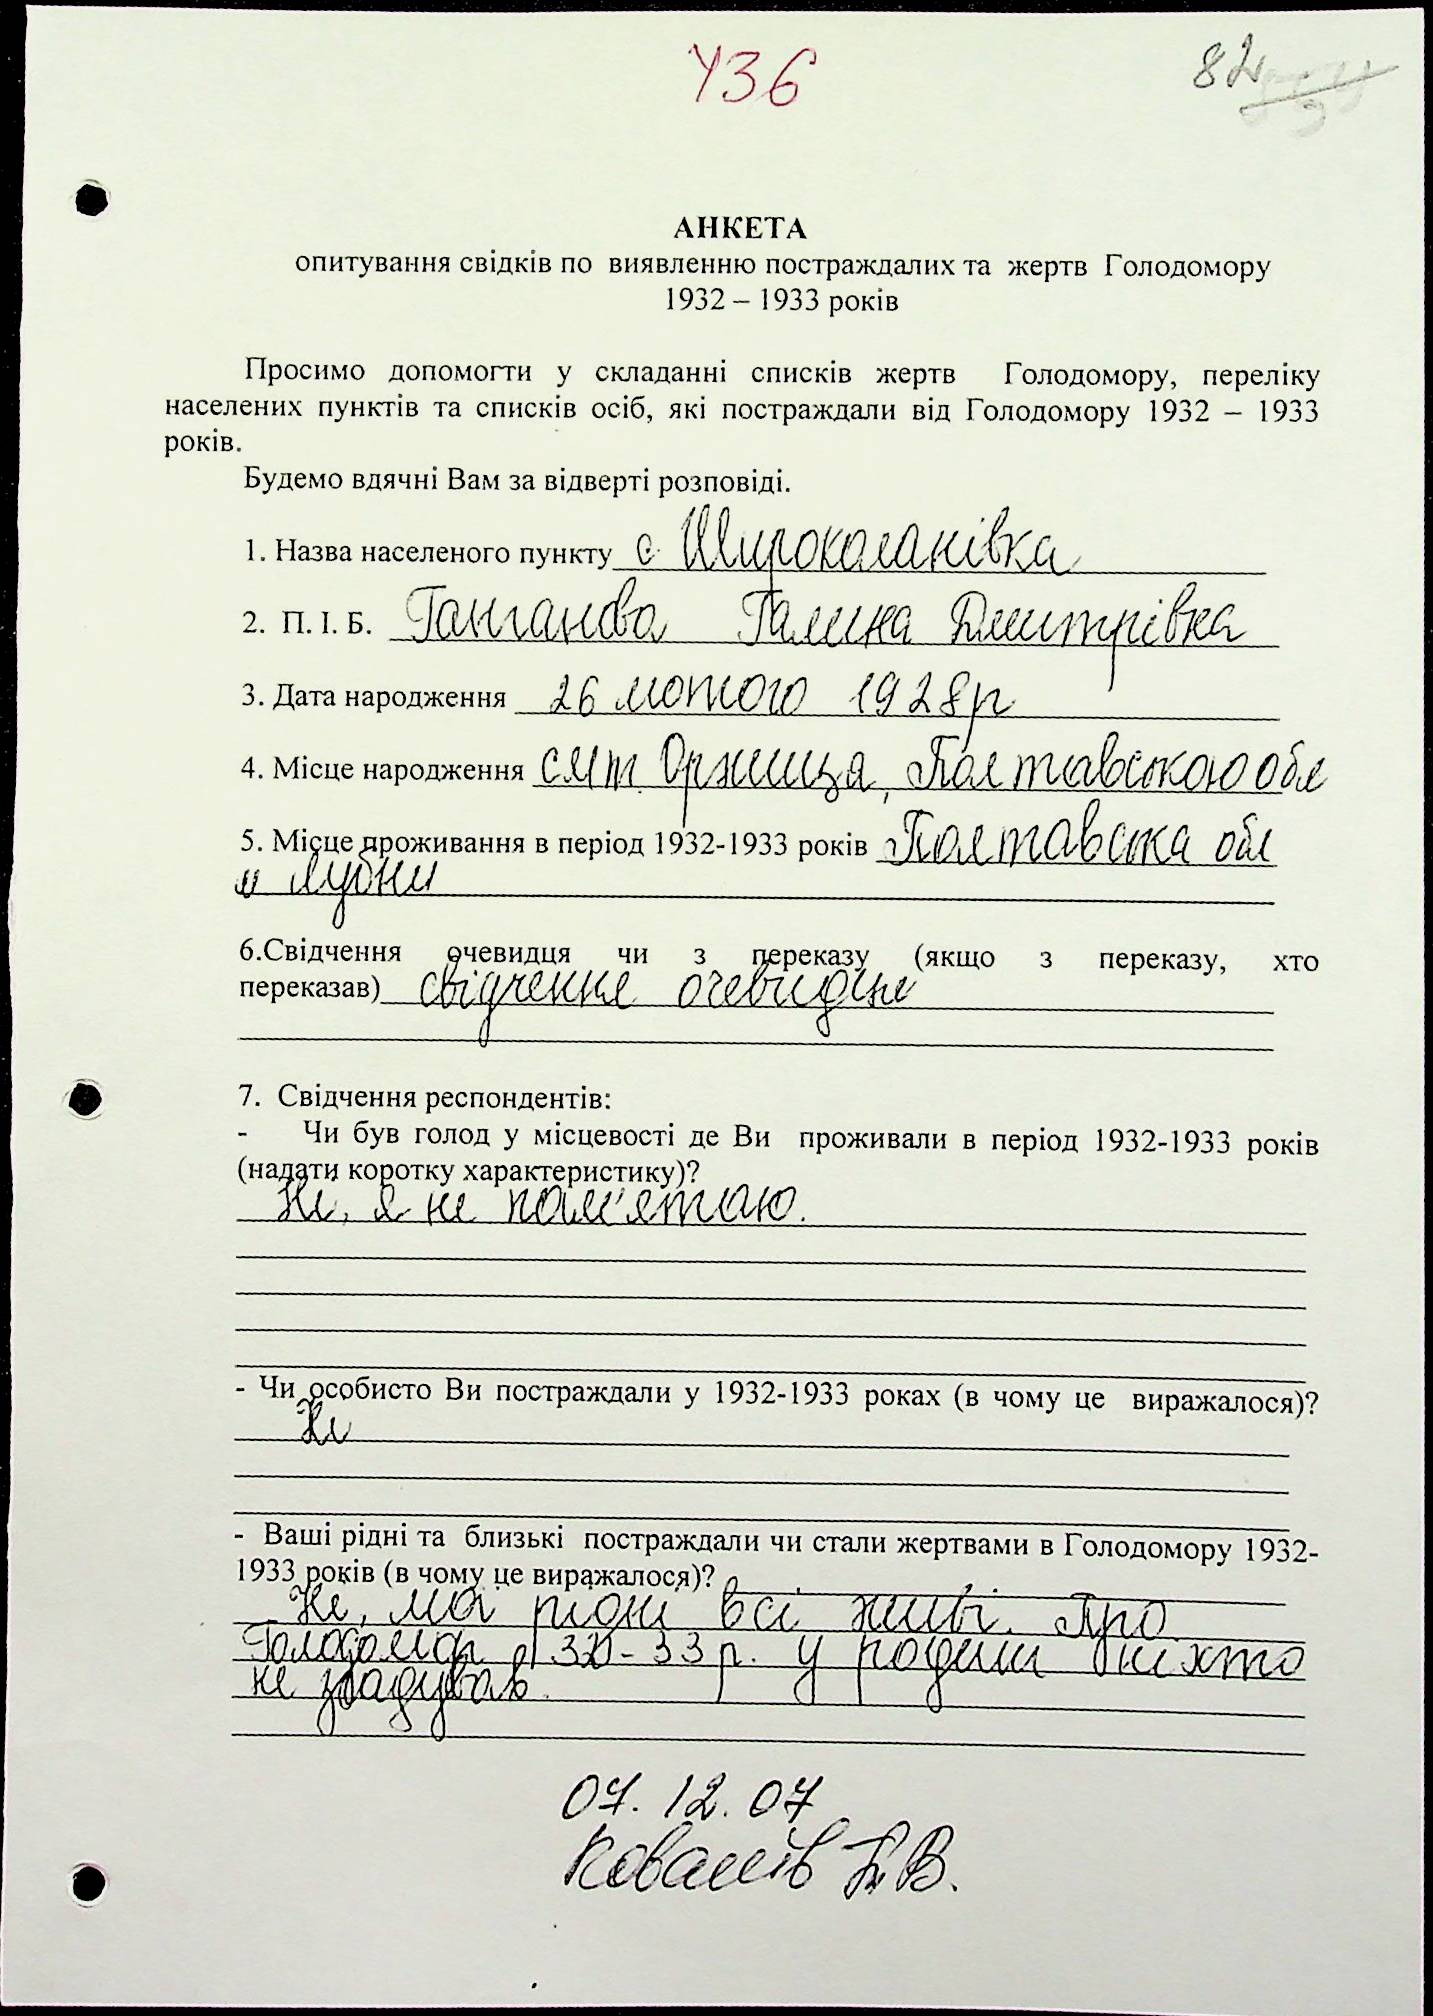 436
82
АНКЕТА
опитування свідків по виявленню постраждалих та жертв Голодомору
1932 – 1933 років
Просимо допомогти у складанні списків жертв Голодомору, переліку
населених пунктів та списків осіб, які постраждали від Голодомору 1932 – 1933
років.
Будемо вдячні Вам за відверті розповіді.
1. Назва населеного пункту с. Широколанівка
2. П. І. Б. Ганганова Галина Дмитрівка
3. Дата народження 26 лютого 1928р
4. Місце народження смт. Оржиця, Полтавською обл
5. Місце проживання в період 1932-1933 років Полтавська обл
м Лубни
6.Свідчення очевидця чи з переказу (якщо з переказу, хто
переказав) свідчення очевидця
7. Свідчення респондентів:
- Чи був голод у місцевості де Ви проживали в період 1932-1933 років
(надати коротку характеристику)?
Ні, я не пам'ятаю.
- Чи особисто Ви постраждали у 1932-1933 роках (в чому це виражалося)?
Ні
- Ваші рідні та близькі постраждали чи стали жертвами в Голодомору 1932-
1933 років (в чому це виражалося)?
Ні, мої рідні всі живі. Про
Голодомор 32-33 р. у родині ніхто
не згадував.
07.12.07